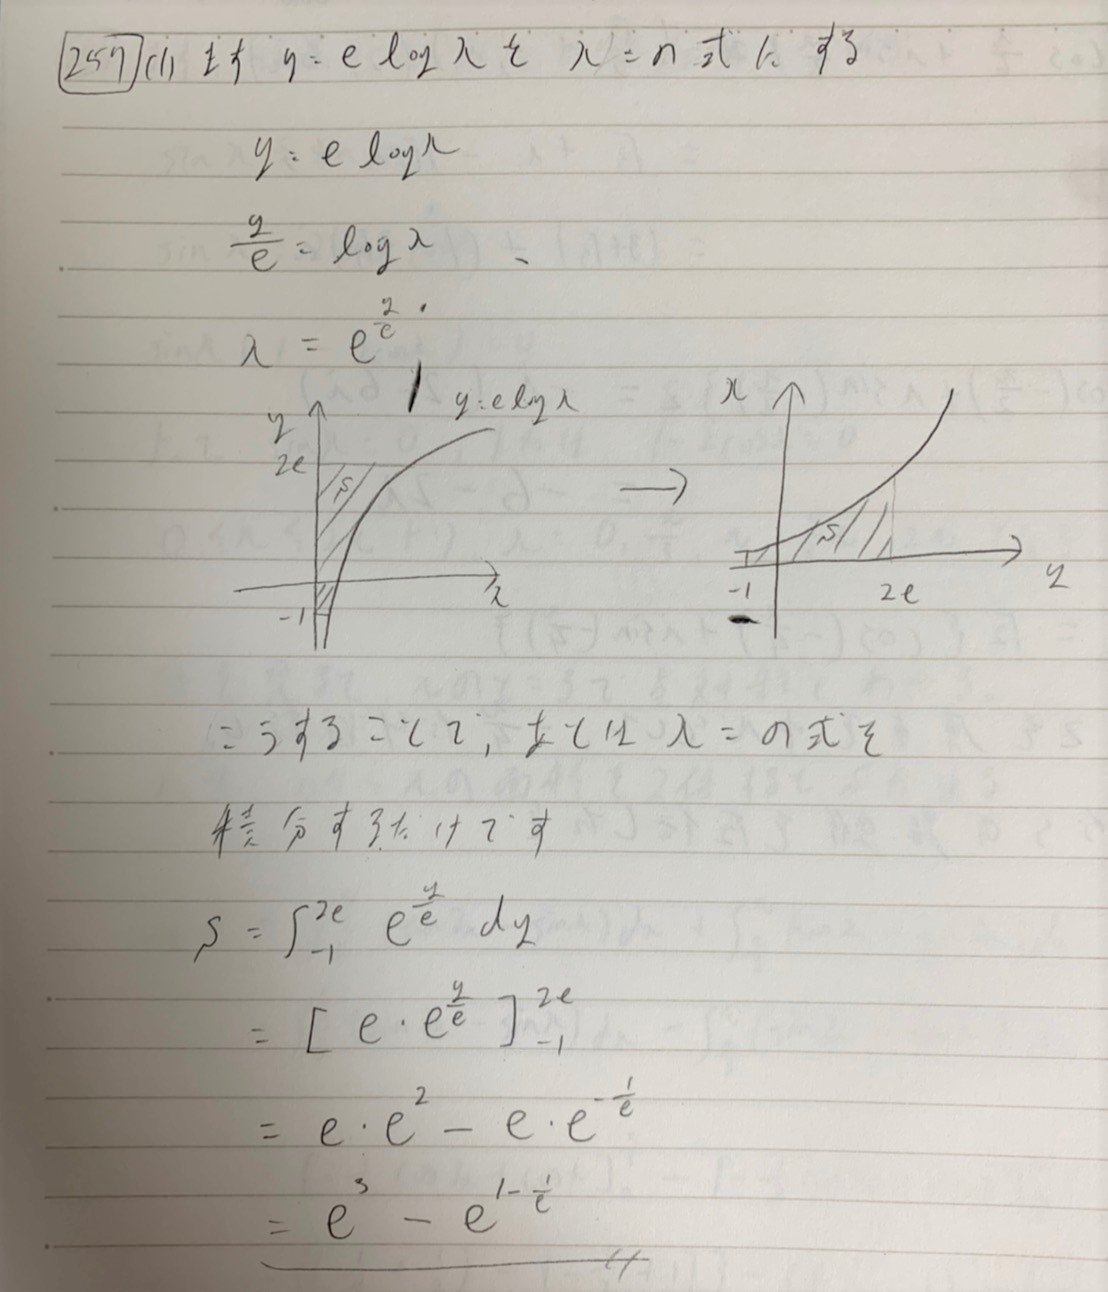 257 (1) まず y = e log x を x = の式にする
y = e log x
y/e = log x
x = e^(y/e)
y
2e
S
y = e log x
x
-1
→
x
S
-1
2e
y
こうすることで, あとは x = の式を
積分するだけです
S = ∫_{-1}^{2e} e^(y/e) dy
= [ e · e^(y/e) ]_{-1}^{2e}
= e · e^2 - e · e^(-1/e)
= e^3 - e^(1-1/e)